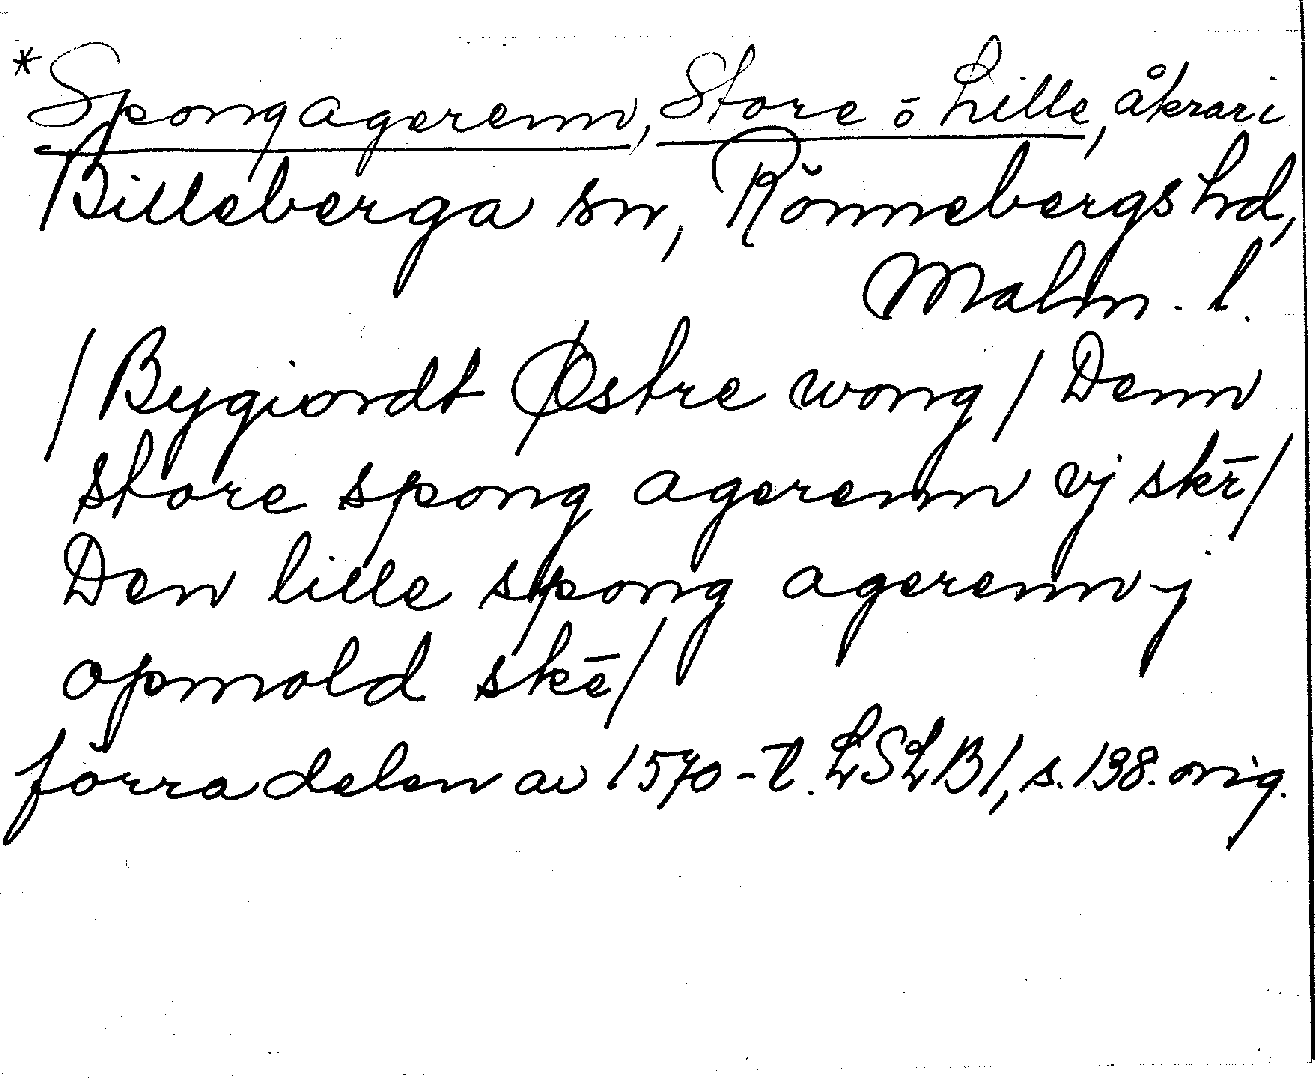 *Spongagerenn, Store ō Lille, åkrar i
Billeberga sn, Rönnebergs hd,
Malm. l.
/ Bygiordt Østre wong / Denn
store spong agerenn vj skē/
Den lille spong agerenn j
opmold skē/
förra delen av 1570-t. LSLB1, s. 138. orig.